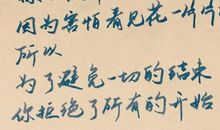 因为害怕看见花一片片
所以
为了避免一切的结束
你拒绝了所有的开始